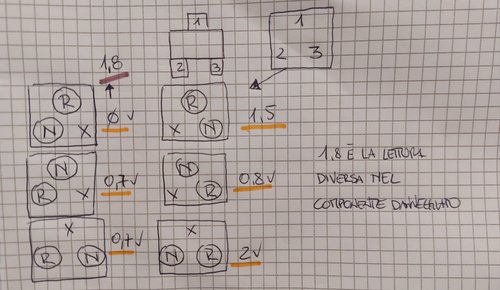 1
1
2 3
2 3
1,8
R
N X
Ø V
R
X N
1,5
N
R X
0,7V
N
X R
0.8V
X
R N
0,7V
X
N R
2V
1,8 È LA LETTURA
DIVERSA NEL
COMPONENTE DANNEGGIATO